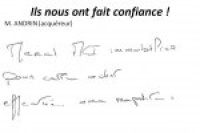 Ils nous ont fait confiance !
M. ANDRIN (acquéreur)
Merci MJ immobilier
pour cette
effectuée avec